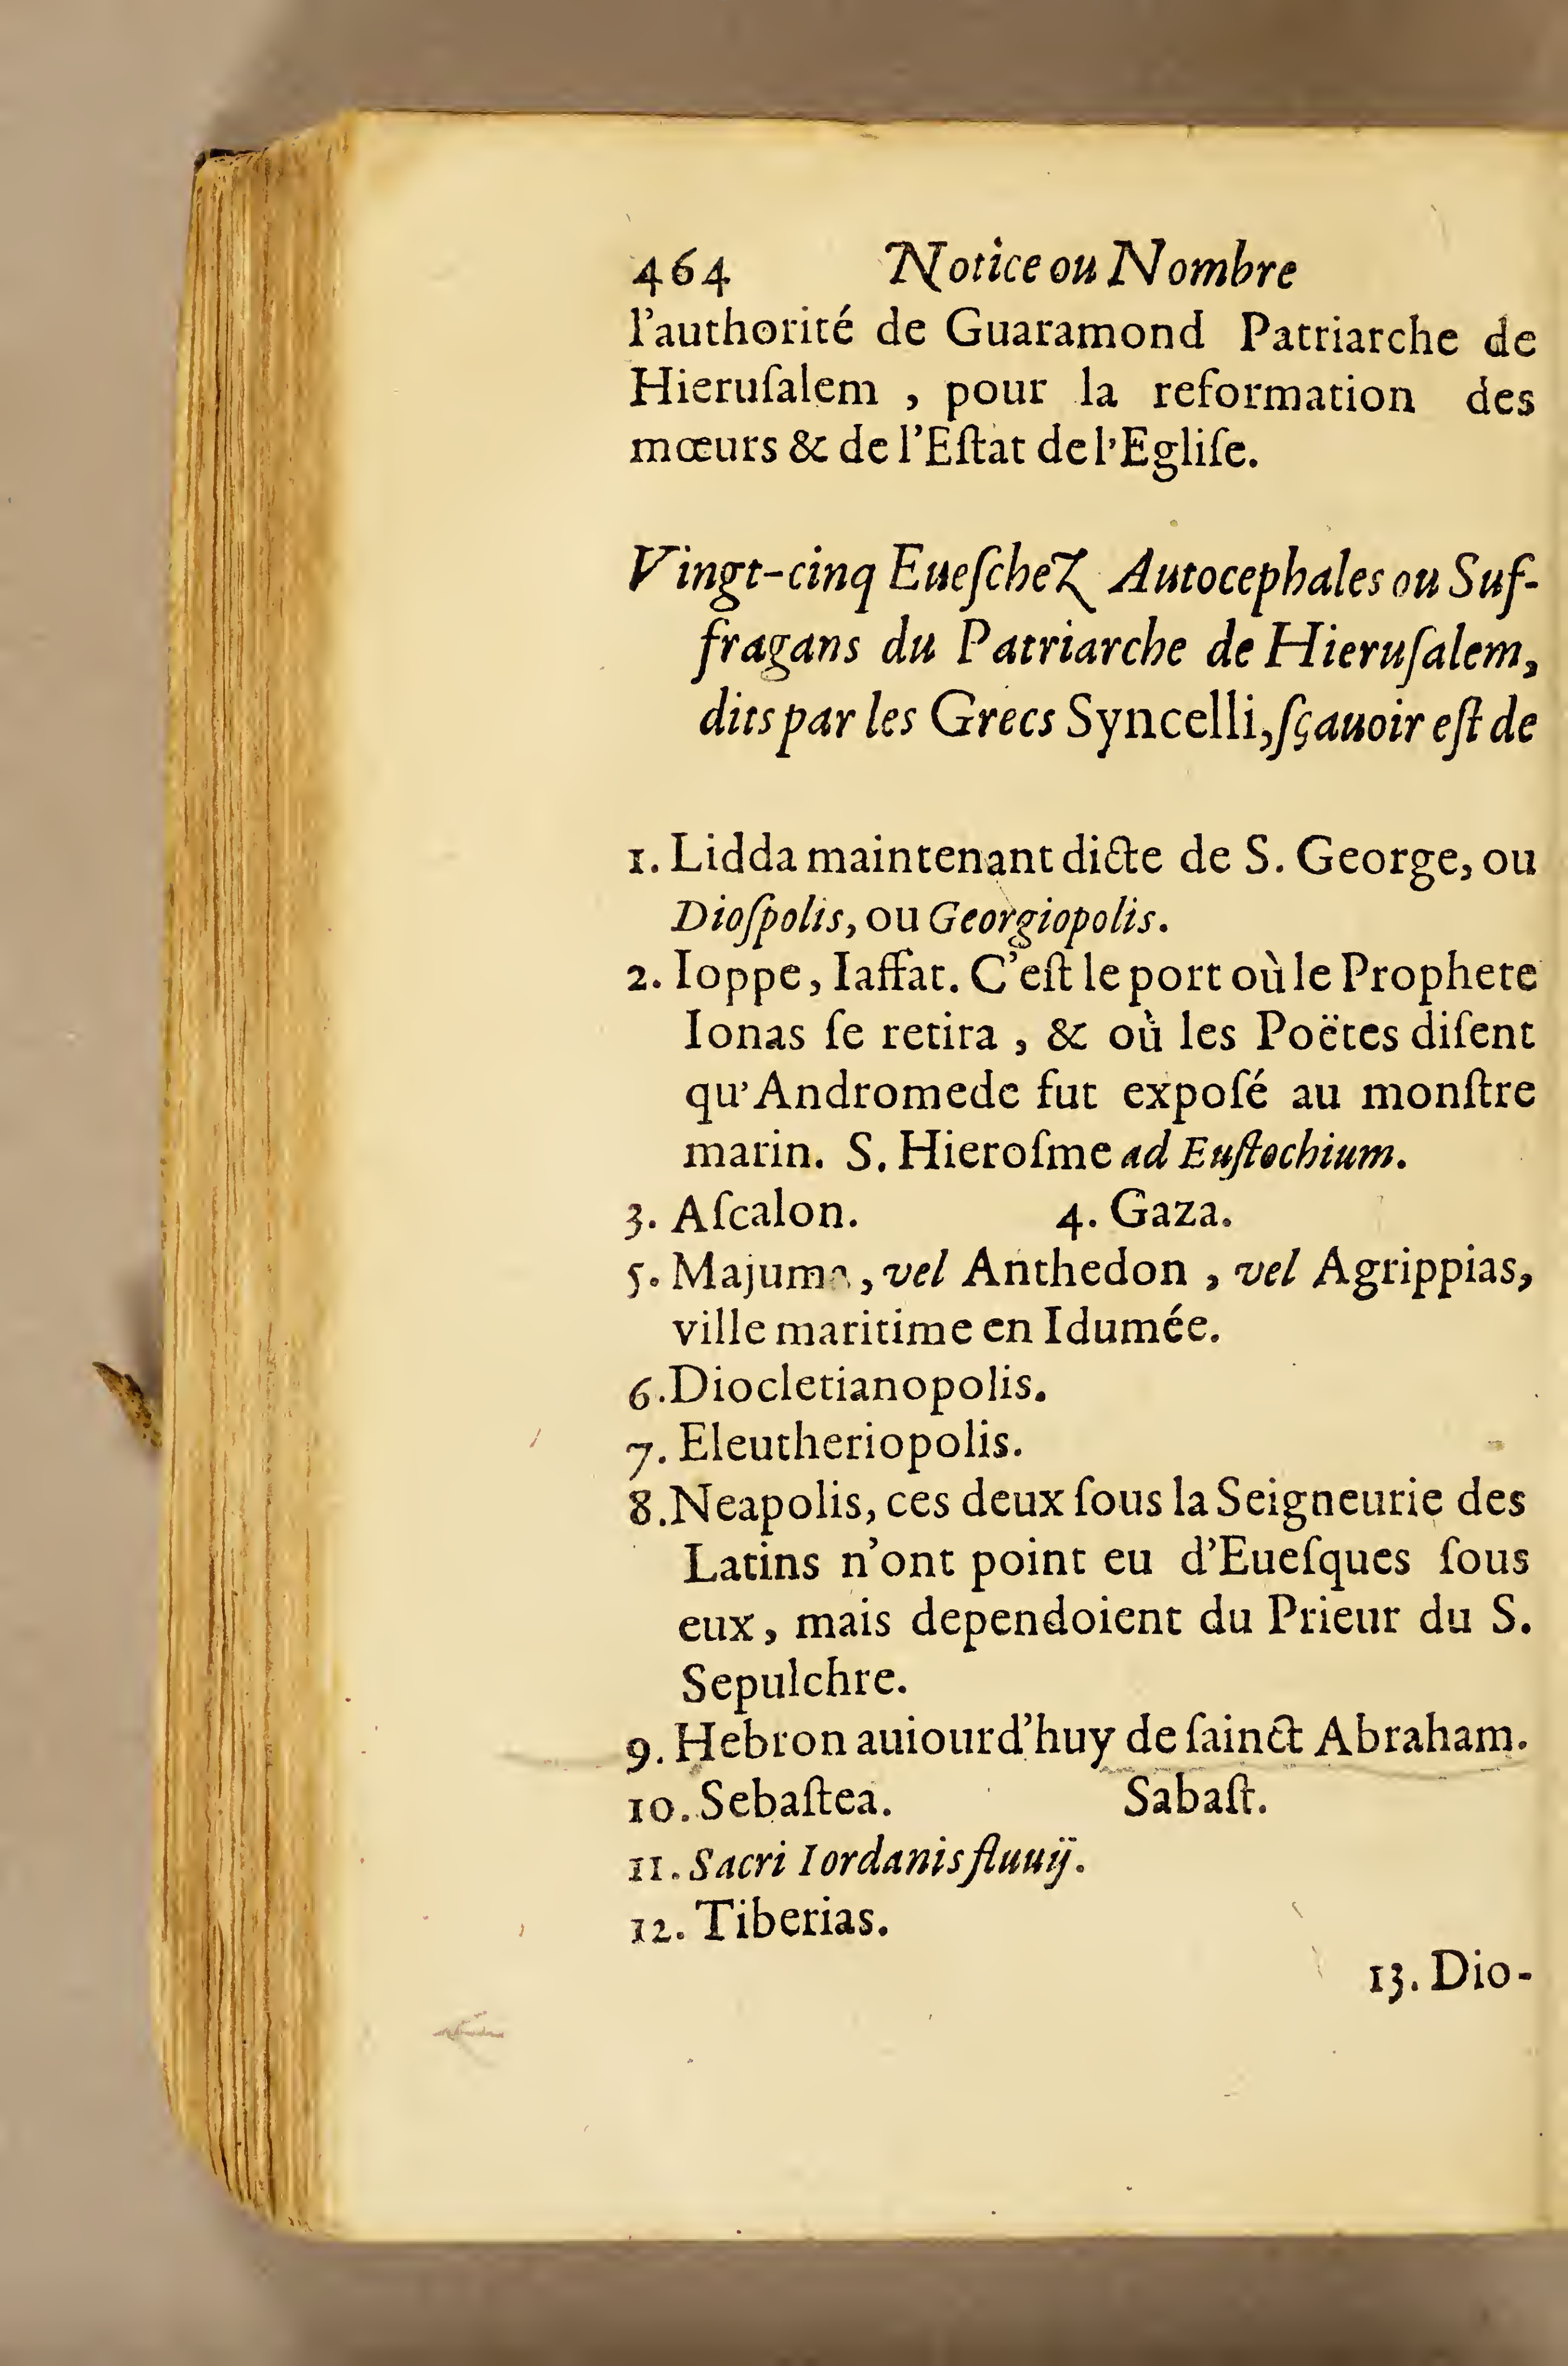 464 Notice ou Nombre
l'authorité de Guaramond Patriarche de
Hieruſalem , pour la reformation des
mœurs & de l'Eſtat de l'Egliſe.
Vingt-cinq Eueſchez Autocephales ou Suf-
fragans du Patriarche de Hieruſalem,
dits par les Grecs Syncelli, ſçauoir eſt de
1. Lidda maintenant dicte de S. George, ou
Dioſpolis, ou Georgiopolis.
2. Ioppe, Iaffat. C'eſt le port où le Prophete
Ionas ſe retira , & où les Poëtes diſent
qu'Andromede fut expoſé au monſtre
marin. S. Hieroſme ad Euſtochium.
3. Aſcalon. 4. Gaza.
5. Majuma, vel Anthedon , vel Agrippias,
ville maritime en Idumée.
6. Diocletianopolis.
7. Eleutheriopolis.
8. Neapolis, ces deux ſous la Seigneurie des
Latins n'ont point eu d'Eueſques ſous
eux, mais dependoient du Prieur du S.
Sepulchre.
9. Hebron auiourd'huy de ſainct Abraham.
10. Sebaſtea. Sabaſt.
11. Sacri Iordanis fluuij.
12. Tiberias.
13. Dio-